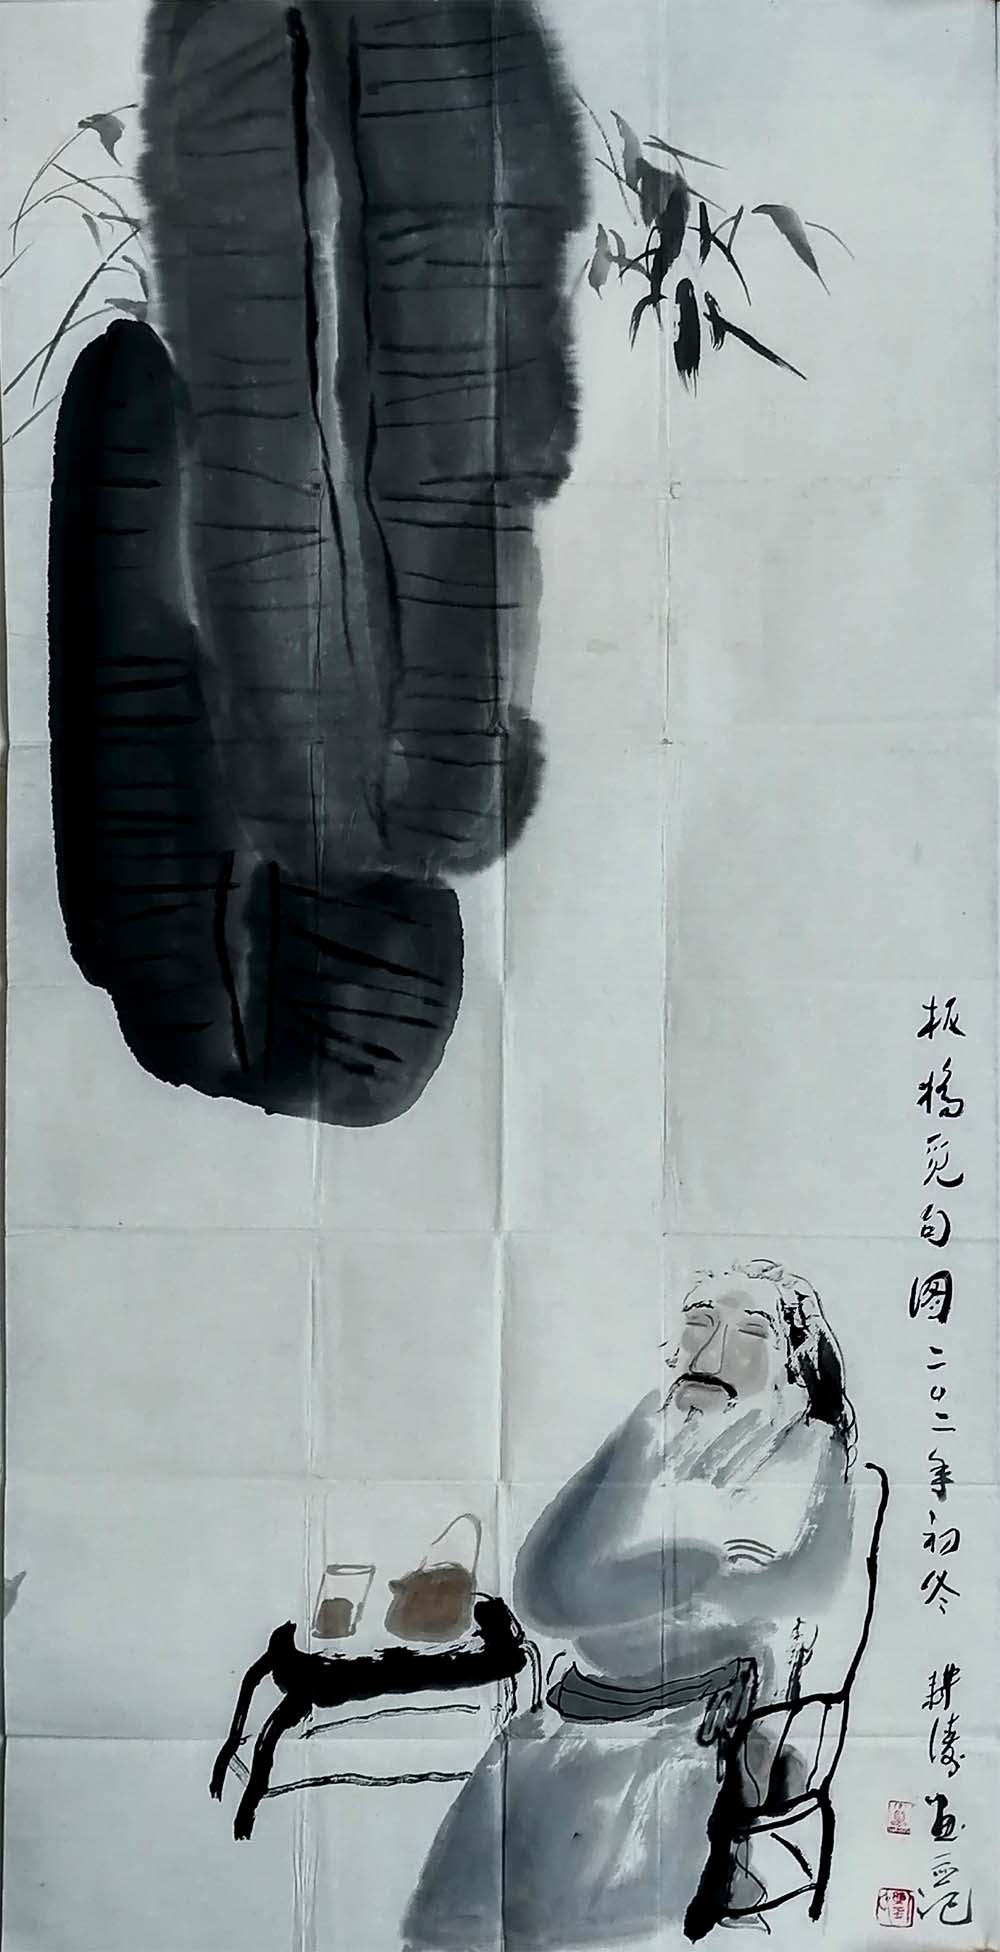 板橋觅句图二0二年初冬 耕涛画并记